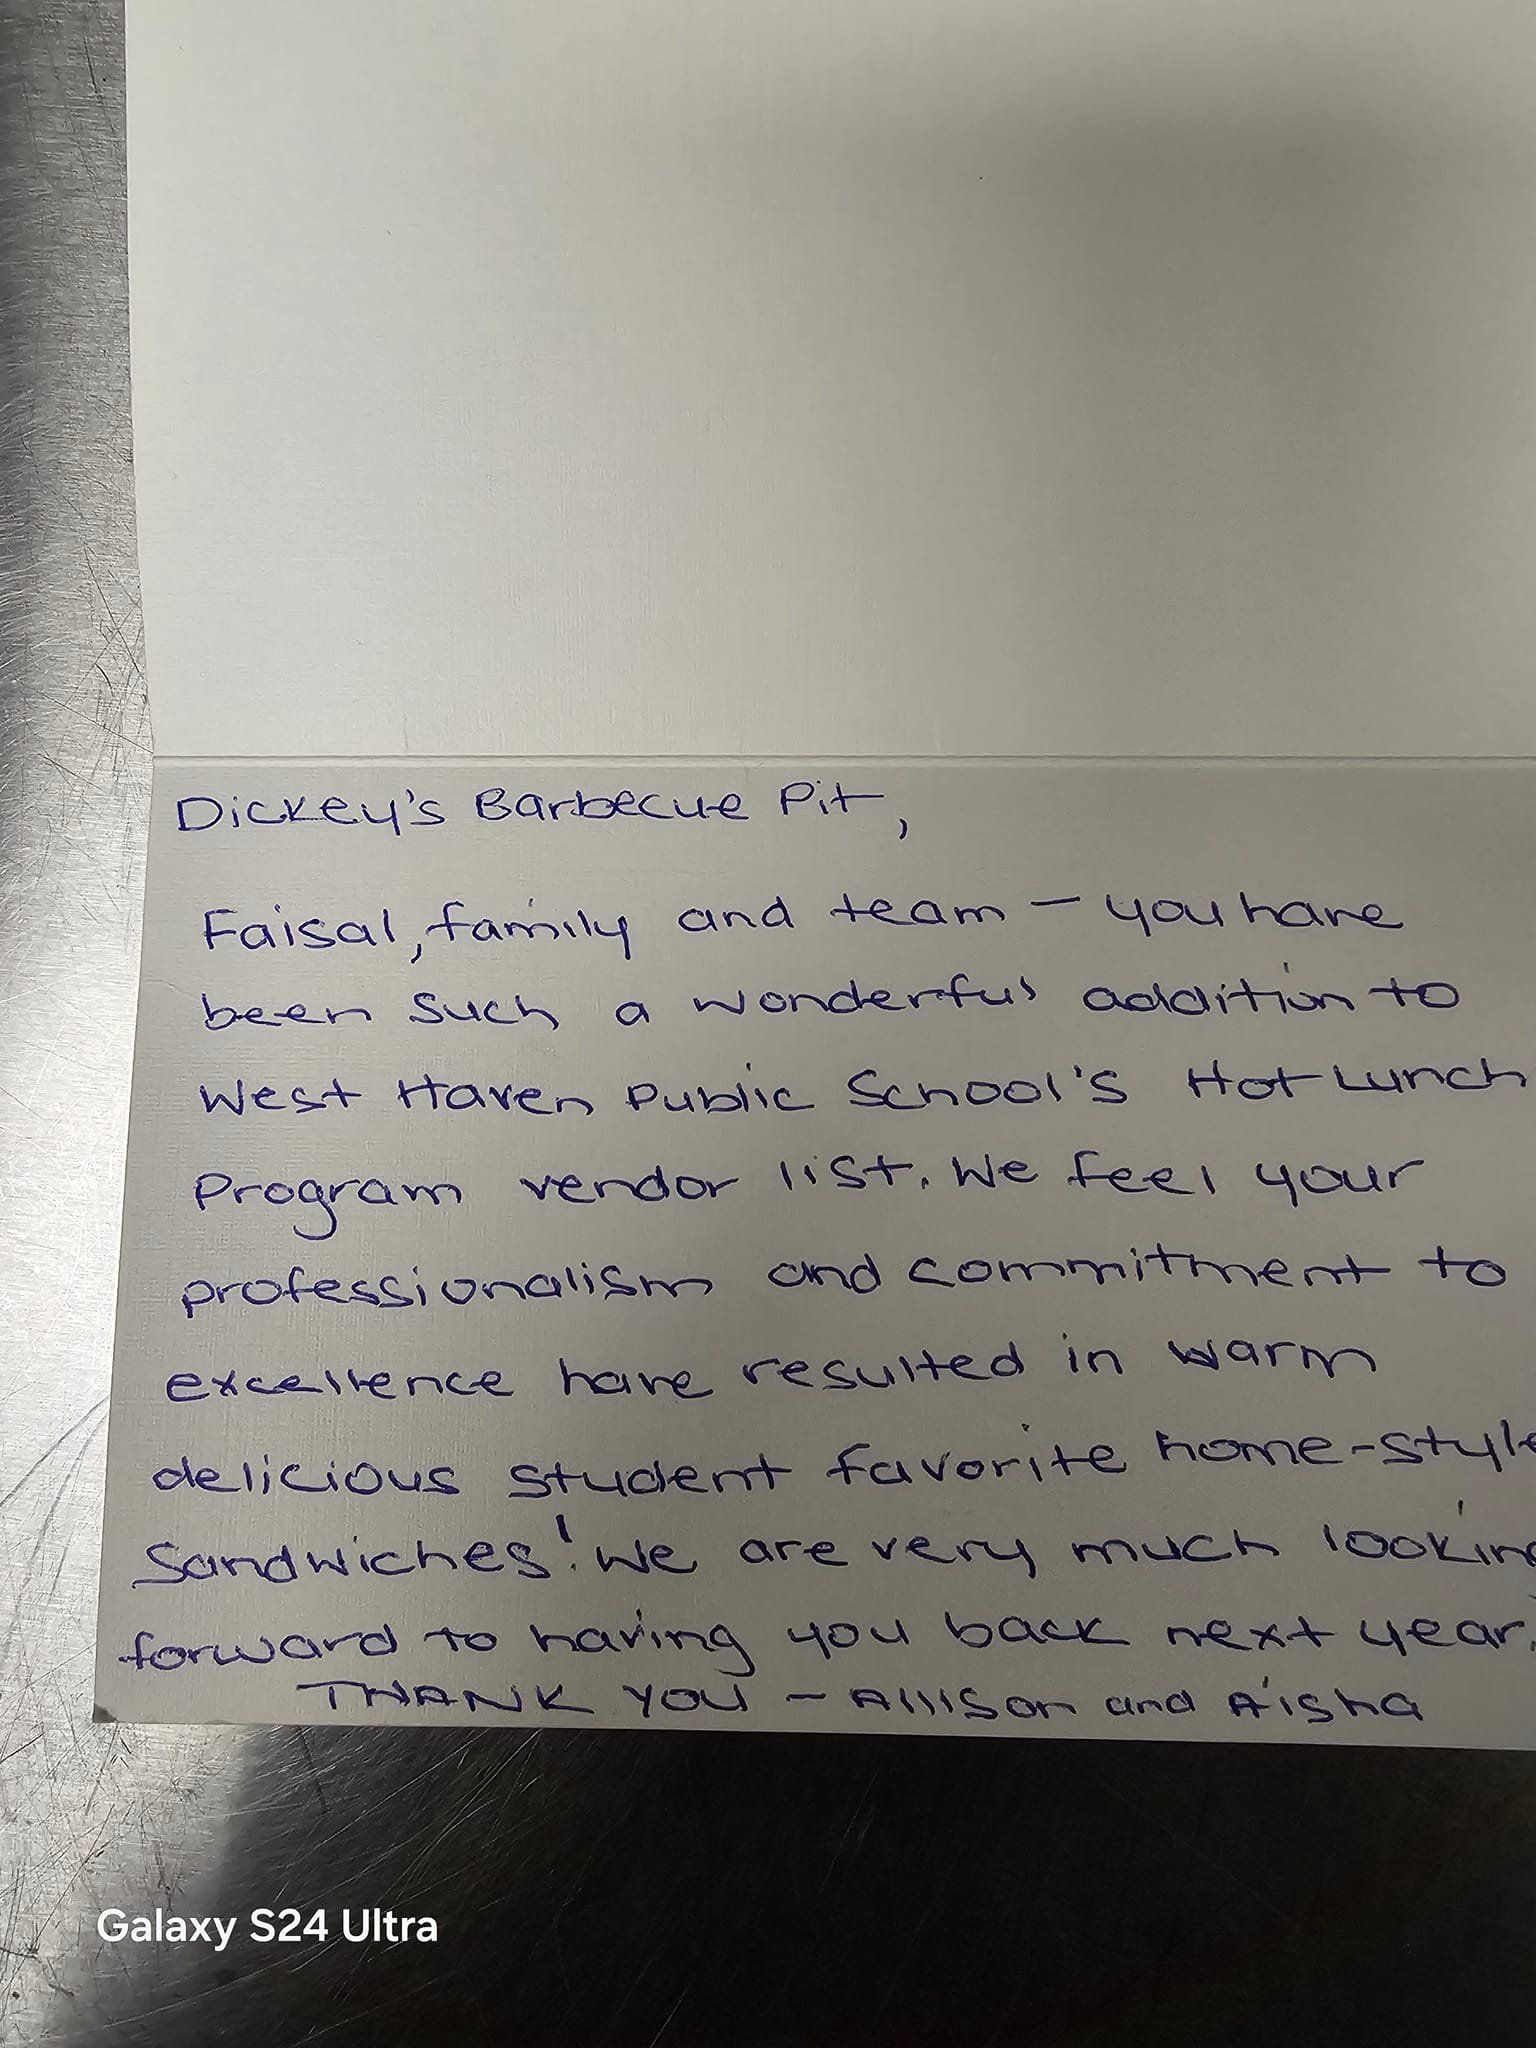 Dickey's Barbecue Pit,
Faisal, family and team - you have
been such a wonderful addition to
West Haven Public School's Hot Lunch
Program vendor list. We feel your
professionalism and commitment to
excellence have resulted in warm
delicious student favorite home-style
sandwiches! We are very much looking
forward to having you back next year.
THANK YOU - Allison and A'isha
Galaxy S24 Ultra